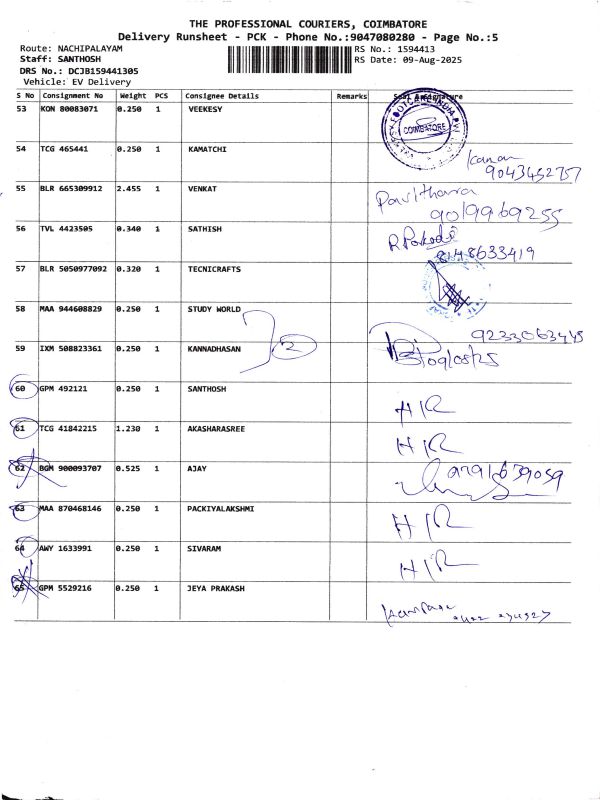 THE PROFESSIONAL COURIERS, COIMBATORE
Delivery Runsheet - PCK - Phone No.:9047080280 - Page No.:5
Route: NACHIPALAYAM RS No.: 1594413
Staff: SANTHOSH RS Date: 09-Aug-2025
DRS No.: DCJB159441305
Vehicle: EV Delivery
S No Consignment No Weight PCS Consignee Details Remarks Seal & Signature
53 KON 80083071 0.250 1 VEEKESY COIMBATORE
54 TCG 465441 0.250 1 KAMATCHI
9043452757
55 BLR 665309912 2.455 1 VENKAT Pavithana
9019969255
56 TVL 4423505 0.340 1 SATHISH
8148633419
57 BLR 5050977092 0.320 1 TECNICRAFTS
58 MAA 944608829 0.250 1 STUDY WORLD
9233063445
59 IXM 508823361 0.250 1 KANNADHASAN 2 09/08/25
60 GPM 492121 0.250 1 SANTHOSH HR
61 TCG 41842215 1.230 1 AKASHARASREE HR
62 BGM 900093707 0.525 1 AJAY 9791639059
63 MAA 870468146 0.250 1 PACKIYALAKSHMI HR
64 AWY 1633991 0.250 1 SIVARAM HR
65 GPM 5529216 0.250 1 JEYA PRAKASH